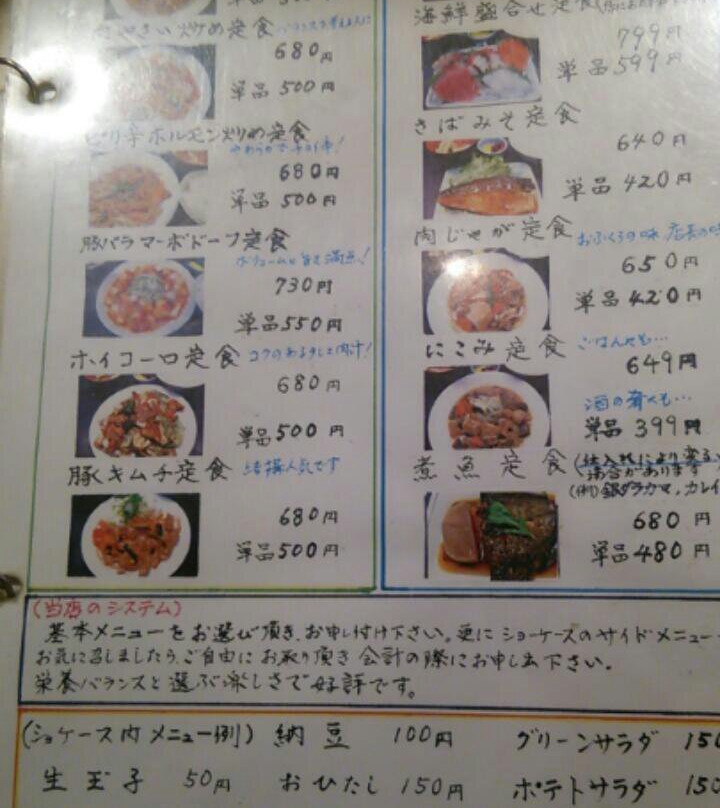 やさい炒め定食
680円
単品 500円
ピリ辛ホルモン炒め定食
680円
単品 500円
豚バラマーボドーフ定食
ボリュームも旨さ満点!
730円
単品 550円
ホイコーロ定食 コクのある少し肉汁!
680円
単品 500円
豚くキムチ定食 結構人気です
680円
単品 500円
海鮮盛合せ定食
799円
単品 599円
さばみそ定食
640円
単品 420円
肉じゃが定食 おふくろの味 店長の味
650円
単品 420円
にこみ定食 ごはんにも…
649円
酒の肴にも…
単品 399円
煮魚定食 (仕入れにより変る
場合があります
(例)銀ダラカマ、カレイ
680円
単品 480円
(当店のシステム)
基本メニューをお選び頂き、お申し付け下さい。更にショーケースのサイドメニュー
お気に召しましたら、ご自由にお取り頂き会計の際にお申し出下さい。
栄養バランスと選ぶ楽しさで好評です。
(ショケース内メニュー例) 納豆 100円 グリーンサラダ 150
生玉子 50円 おひたし 150円 ポテトサラダ 150